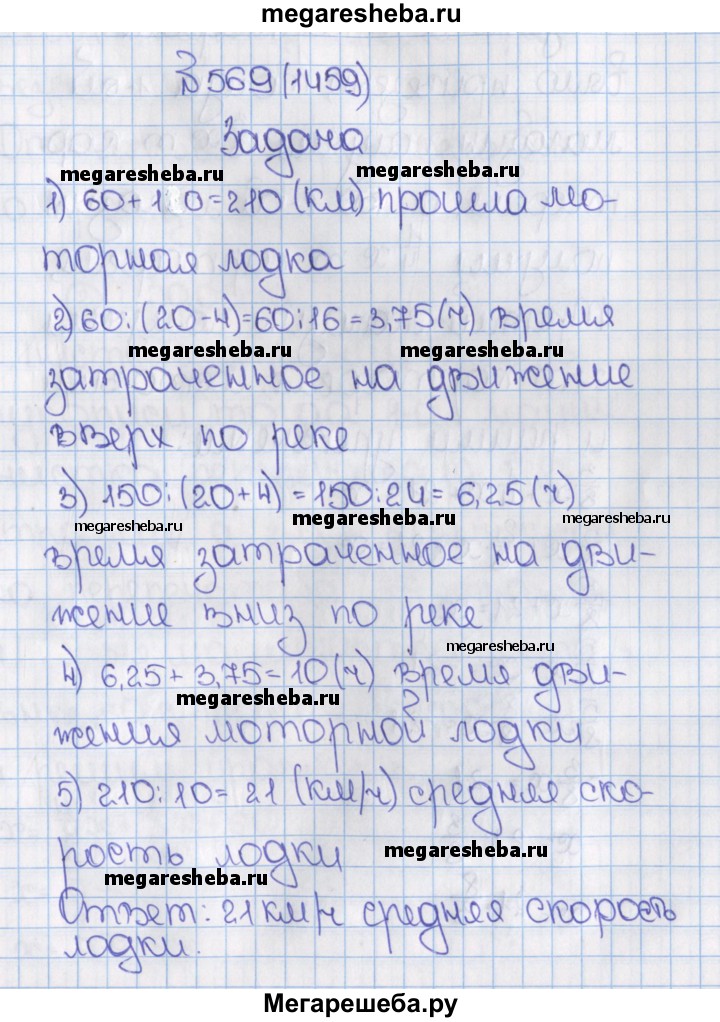 megaresheba.ru
№569(1459)
Задача
megaresheba.ru megaresheba.ru
1) 60+1 0=210 (км) прошла мо-
торная лодка
2) 60:(20-4)=60:16=3,75(ч) время
megaresheba.ru megaresheba.ru
затраченное на движение
вверх по реке
3) 150:(20+4)=150:24=6,25(ч)
megaresheba.ru megaresheba.ru megaresheba.ru
время затраченное на дви-
жение вниз по реке
megaresheba.ru
4) 6,25+3,75=10(ч) время дви-
megaresheba.ru
жения моторной лодки
5) 210:10=21 (км/ч) средняя ско-
рость лодки
megaresheba.ru
megaresheba.ru
Ответ: 21 км/ч средняя скорость
лодки.
Мегарешеба.ру